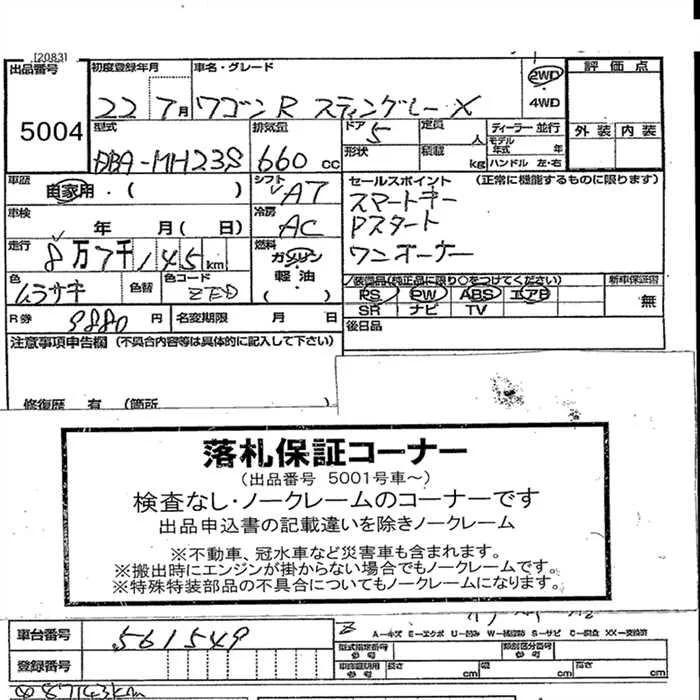 [2083]
出品番号 初度登録年月 車名・グレード 2WD 評価点
22 7月 ワゴンR スティングレー X 4WD
5004 型式 排気量 ドア 5 定員 人 ディーラー 並行 外装 内装
DBA-MH23S 660cc 形状 積載 kg モデル年式 年 ハンドル 左・右
車歴 自家用・( ) シフト AT セールスポイント (正常に機能するものに限ります)
スマートキー
車検 年 月( 日) 冷房 AC Pスタート
走行 8万7千145km 燃料 ガソリン ワンオーナー
軽油
( )
色 ムラサキ 色替 色コード ZED 装備品(純正品に限り○をつけてください) 新車保証書
PS PW ABS エアB 無
R券 9880円 名変期限 月 日 SR ナビ TV
後日品
注意事項申告欄 (不具合内容等は具体的に記入して下さい)
修復歴 有 (箇所 )
落札保証コーナー
(出品番号 5001号車～)
検査なし・ノークレームのコーナーです
出品申込書の記載違いを除きノークレーム
※不動車、冠水車など災害車も含まれます。
※搬出時にエンジンが掛からない場合でもノークレームです。
※特殊特装部品の不具合についてもノークレームになります。
車台番号 561549 A-キズ E-エクボ U-凹み S-サビ C-腐食 XX-交換済
型式指定番号 参考 類別区分番号 参考
登録番号 参考 長さ cm 幅 cm 高さ cm
87143km